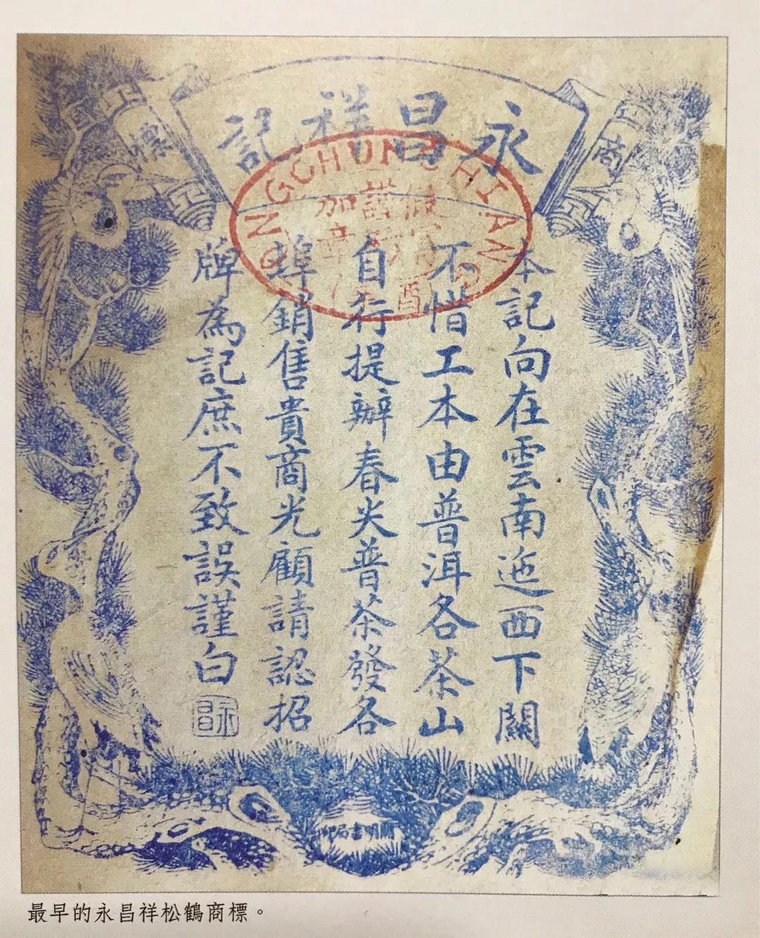 商標
永昌祥記
本記向在雲南迤西下關
不惜工本由普洱各茶山
自行提辦春尖普茶發各
埠銷售貴商光顧請認招
牌為記庶不致誤謹白
永昌
明書局印
最早的永昌祥松鶴商標。